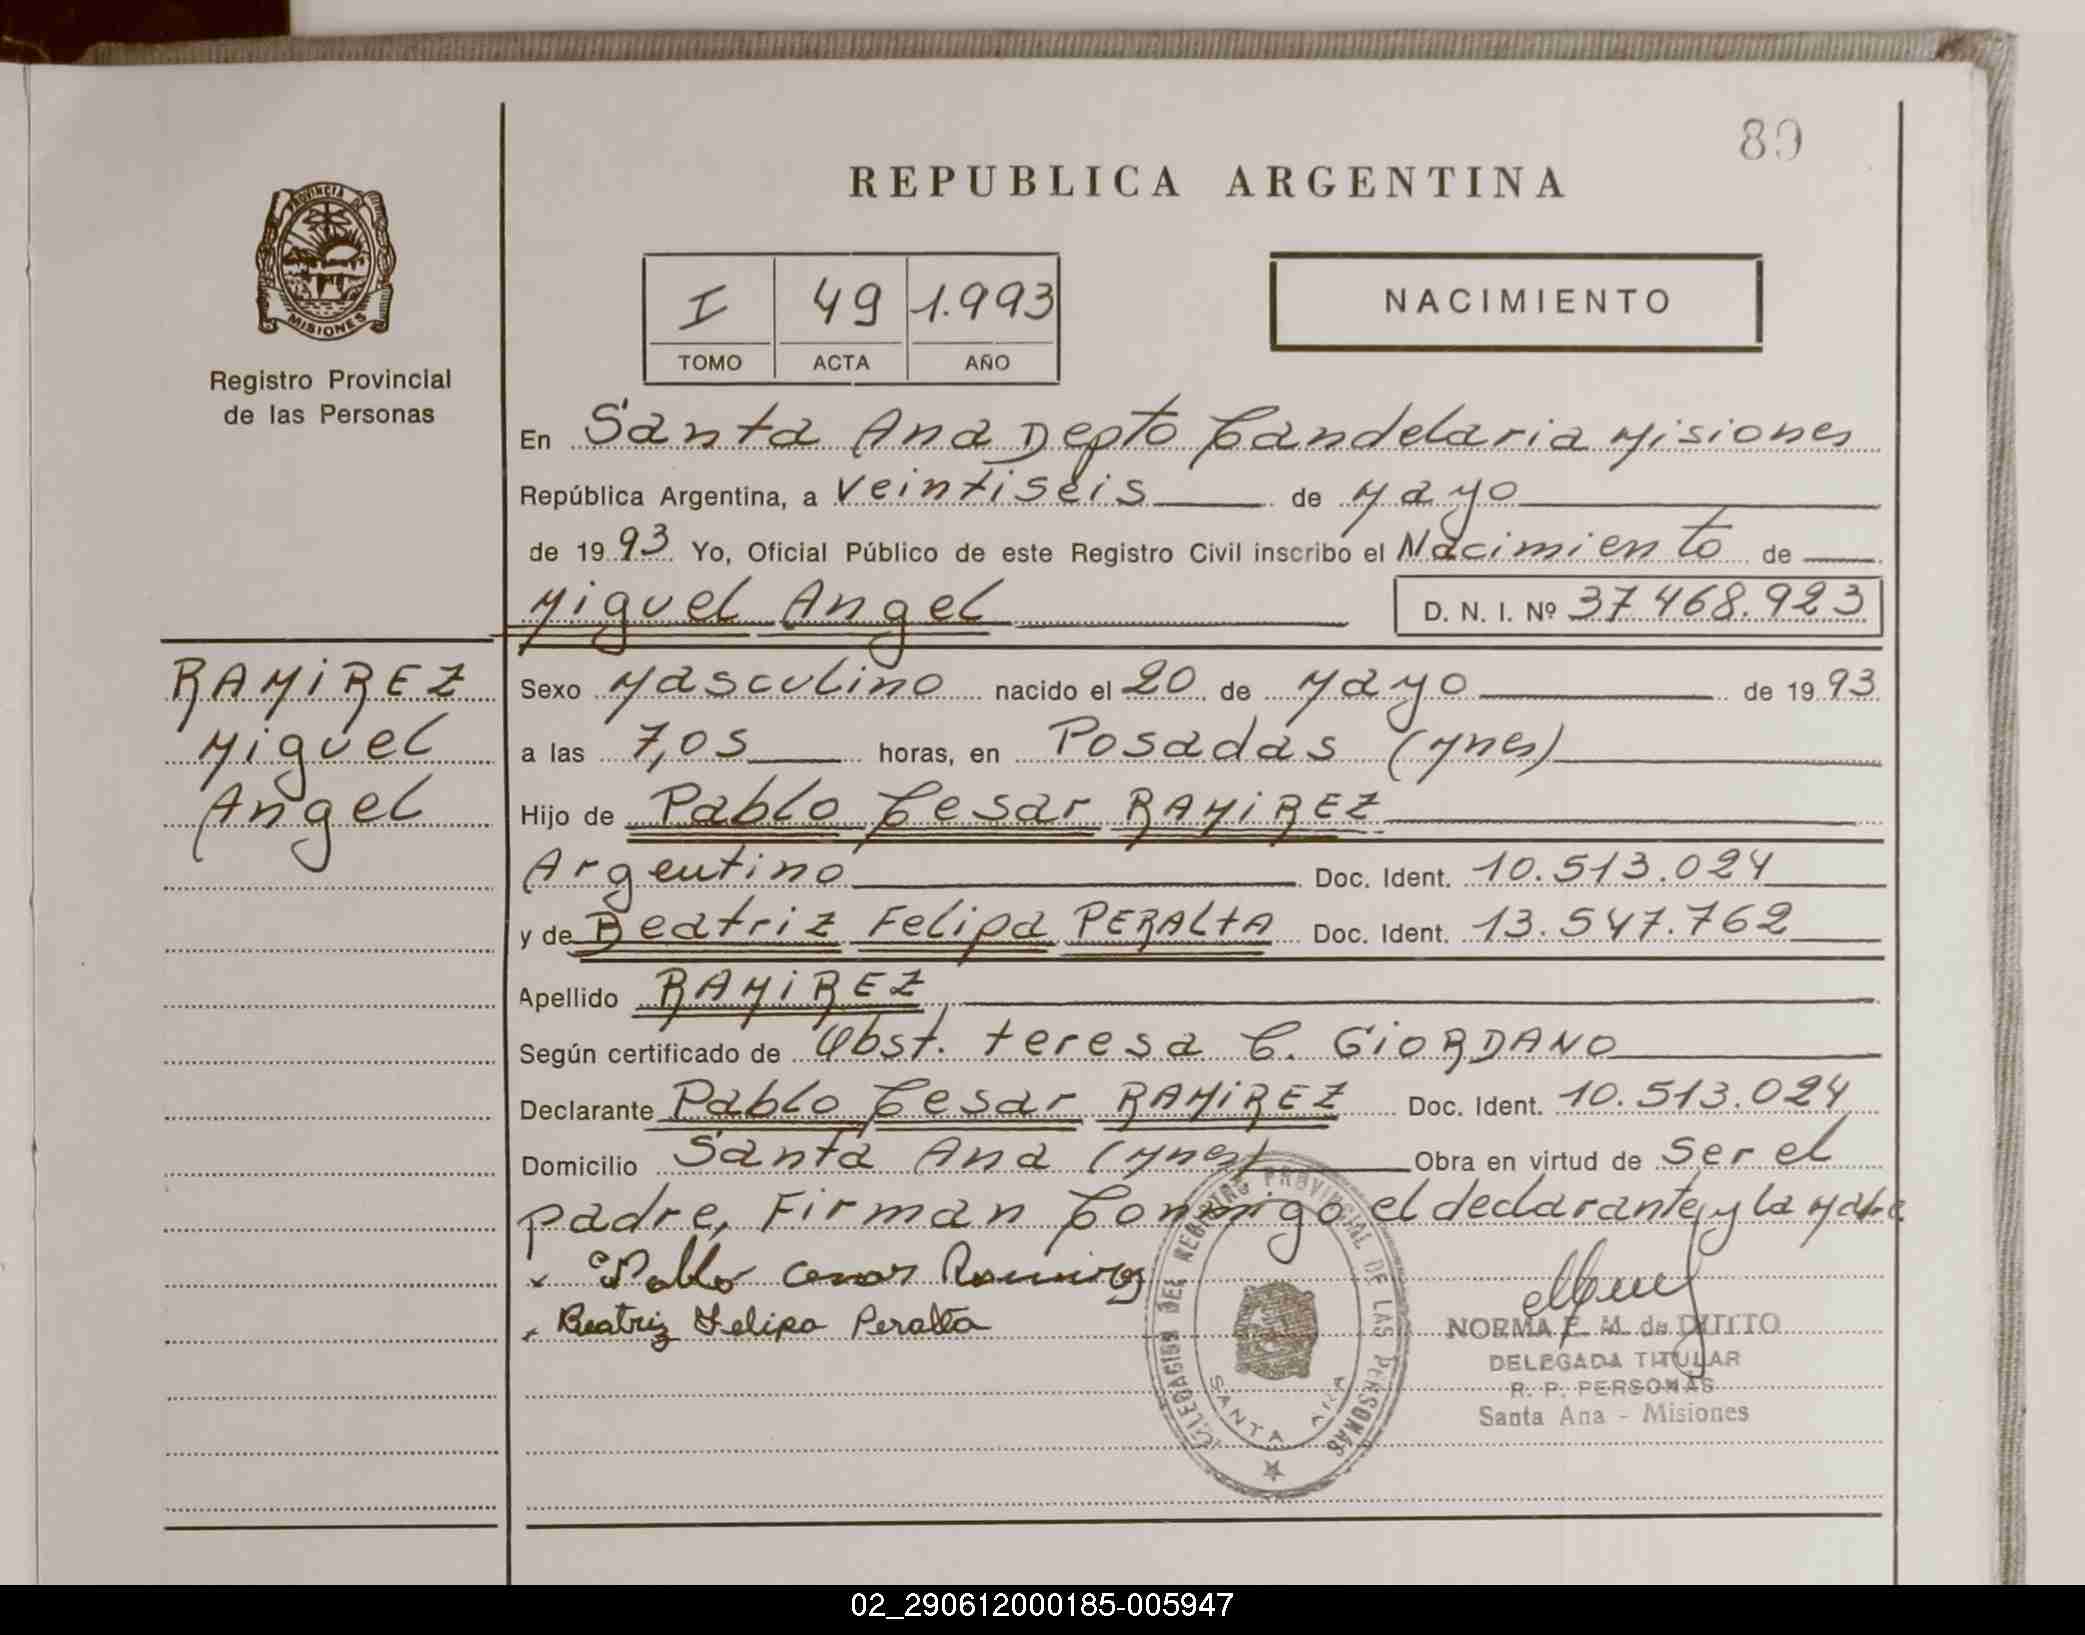 89
REPUBLICA ARGENTINA
PROVINCIA DE
MISIONES
Registro Provincial
de las Personas
I 49 1.993
TOMO ACTA AÑO
NACIMIENTO
En Santa Ana Depto Candelaria Misiones
República Argentina, a veintiseis de Mayo
de 1993 Yo, Oficial Público de este Registro Civil inscribo el Nacimiento de
Miguel Angel D. N. I. Nº 37.468.923
RAMIREZ
Miguel
Angel
Sexo Masculino nacido el 20 de Mayo de 1993
a las 7,05 horas, en Posadas (Mnes)
Hijo de Pablo Cesar RAMIREZ
Argentino Doc. Ident. 10.513.024
y de Beatriz Felipa PERALTA Doc. Ident. 13.547.762
Apellido RAMIREZ
Según certificado de Obst. teresa C. GiORDANO
Declarante Pablo Cesar RAMIREZ Doc. Ident. 10.513.024
Domicilio Santa Ana (Mnes) Obra en virtud de ser el
padre, Firman Conmigo el declarante y la Madre
x Pablo Cesar Ramirez
x Beatriz Felipa Peralta
DELEGACION DEL REGISTRO PROVINCIAL DE LAS PERSONAS
SANTA ANA
NORMA E. M. de
DELEGADA TITULAR
R. P. PERSONAS
Santa Ana - Misiones
02_290612000185-005947